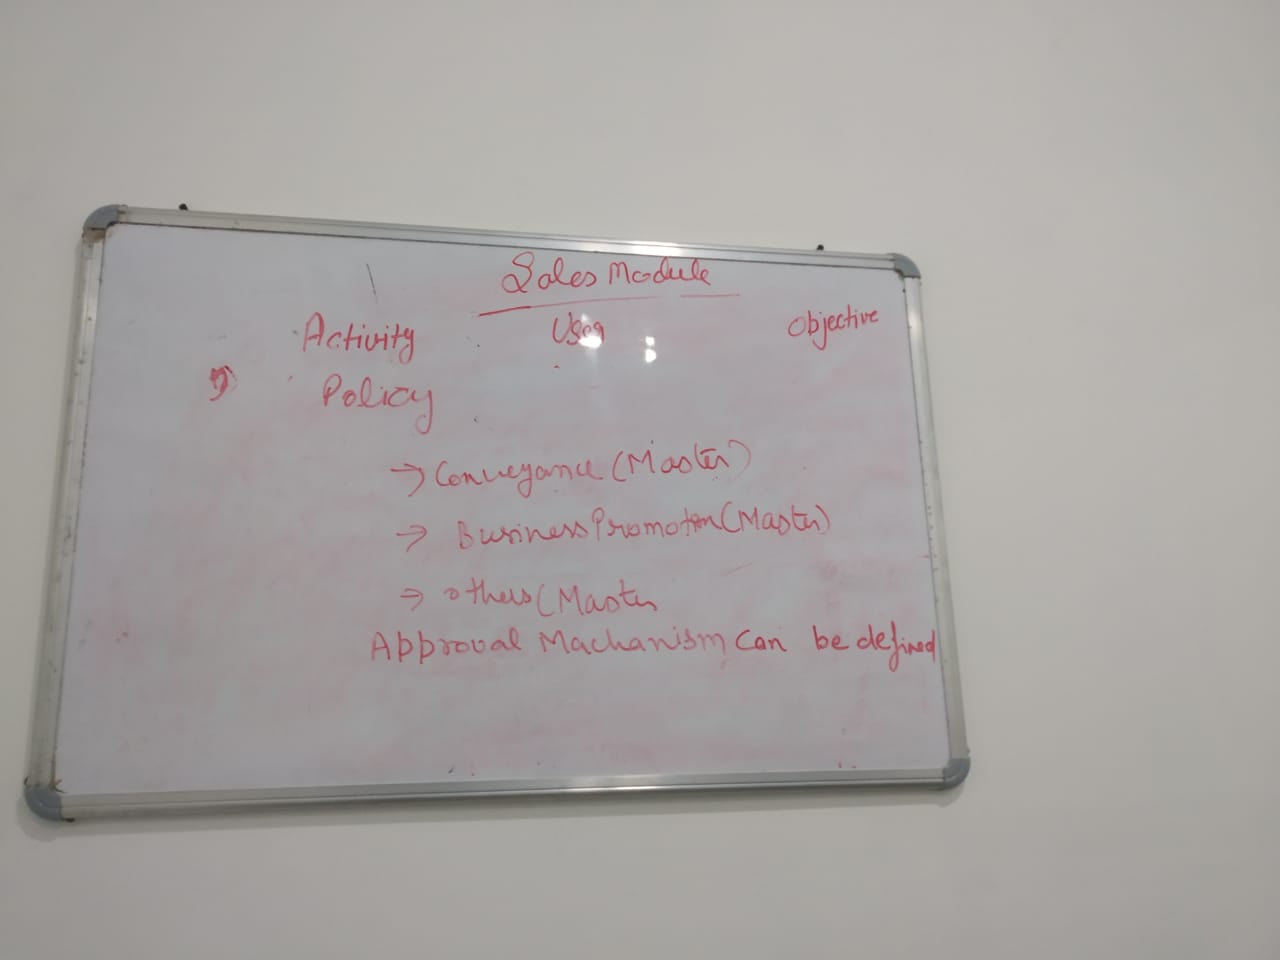 Sales Module
Activity User Objective
Policy
→ Conveyance (Master)
→ Business Promotion (Master)
→ others (Master
Approval Machanism Can be defined